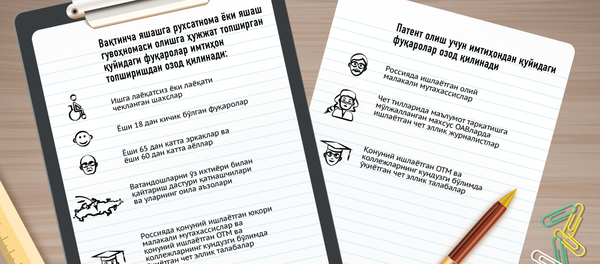 Вақтинча яшашга рухсатнома ёки яшаш
гувоҳномаси олишга ҳужжат топширган
қуйидаги фуқаролар имтиҳон
топширишдан озод қилинади:
Ишга лаёқатсиз ёки лаёқати
чекланган шахслар
Ёши 18 дан кичик бўлган фуқаролар
Ёши 65 дан катта эркаклар ва
ёши 60 дан катта аёллар
Ватандошларни ўз ихтиёри билан
қайтариш дастури қатнашчилари
ва уларнинг оила аъзолари
Россияда қонуний ишлаётган юқори
малакали мутахассислар ва
қонуний ишлаётган ОТМ ва
коллежларнинг кундузги бўлимда
ўқиётган чет эллик талабалар
Патент олиш учун имтиҳондан қуйидаги
фуқаролар озод қилинади
Россияда ишлаётган олий
малакали мутахассислар
Чет тилларида маълумот тарқатишга
мўлжалланган махсус ОАВларда
ишлаётган чет эллик журналистлар
Қонуний ишлаётган ОТМ ва
коллежларнинг кундузги бўлимда
ўқиётган чет эллик талабалар